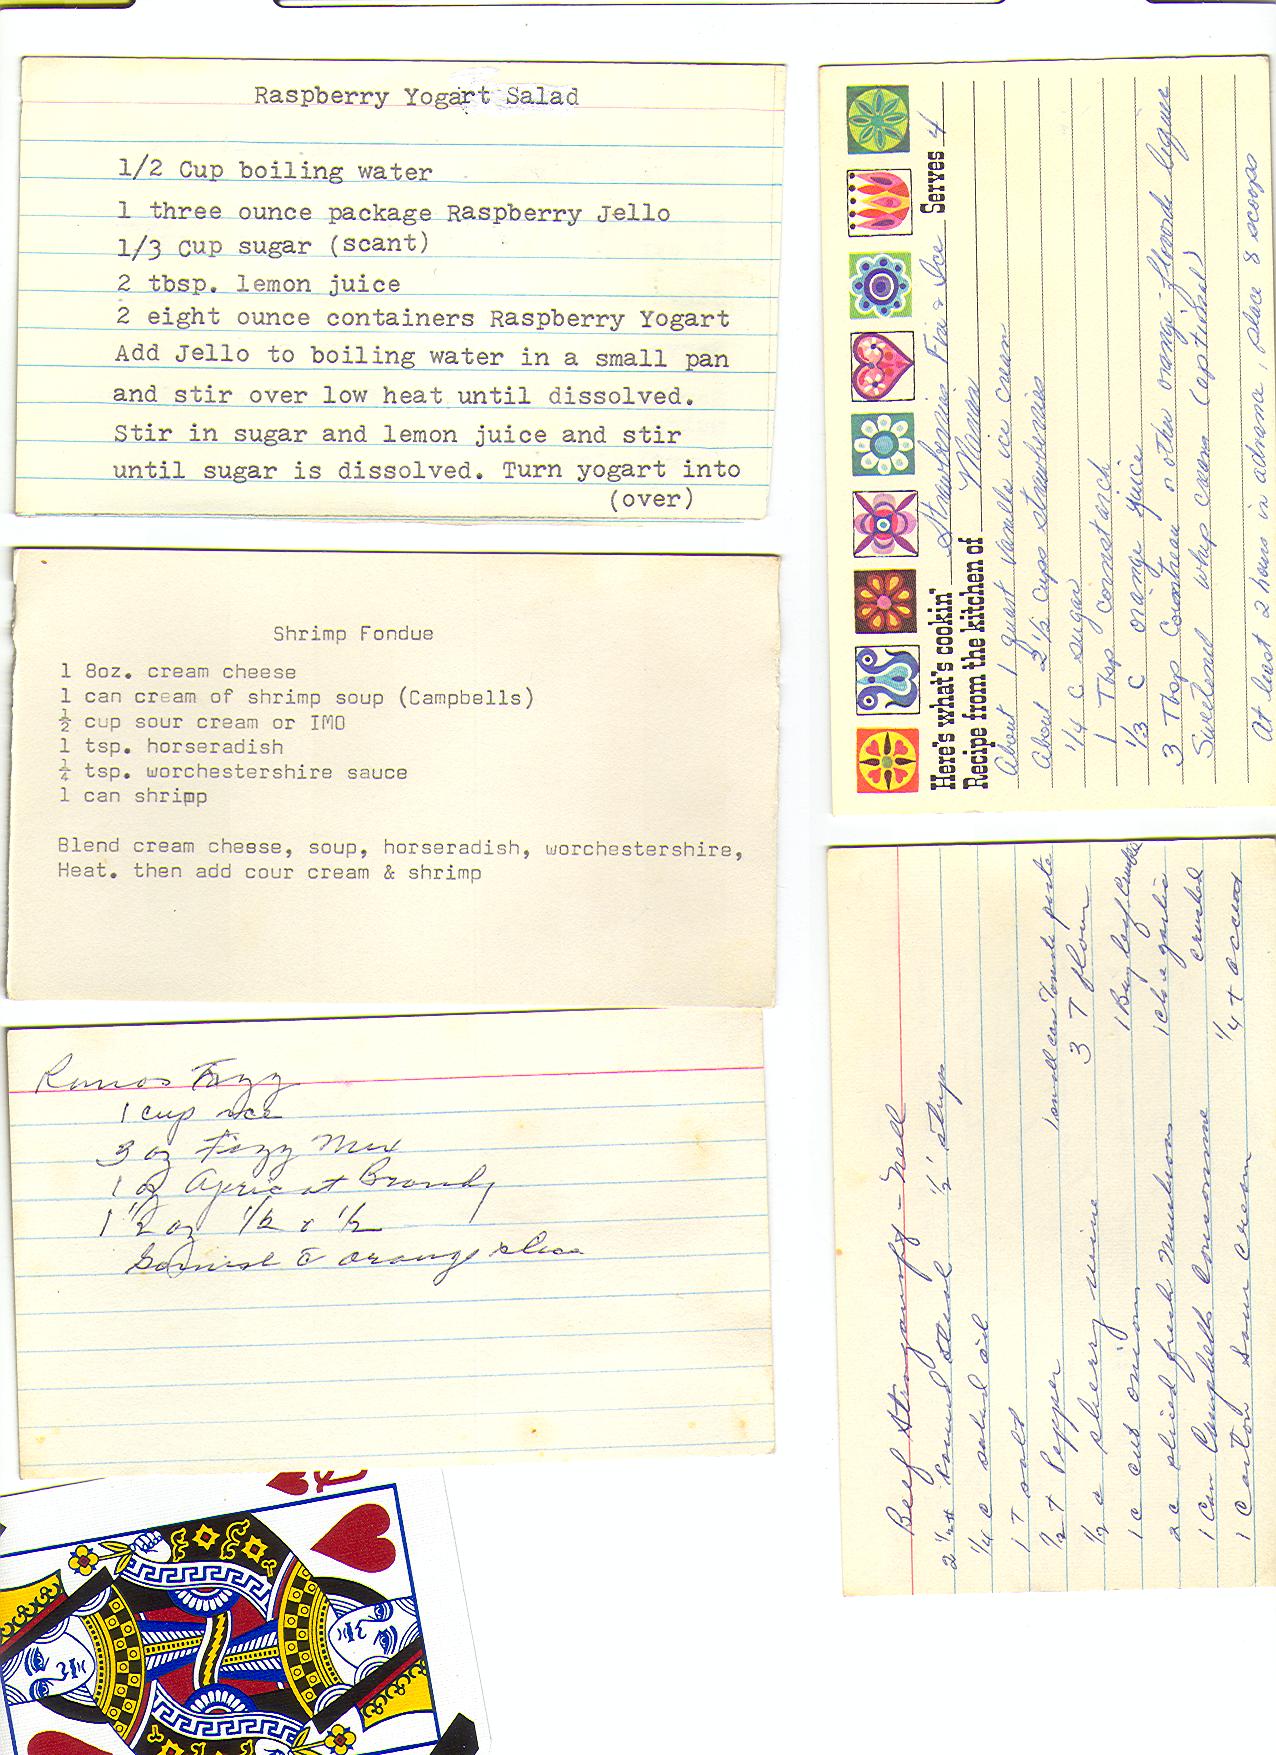 Raspberry Yogart Salad
1/2 Cup boiling water
1 three ounce package Raspberry Jello
1/3 Cup sugar (scant)
2 tbsp. lemon juice
2 eight ounce containers Raspberry Yogart
Add Jello to boiling water in a small pan
and stir over low heat until dissolved.
Stir in sugar and lemon juice and stir
until sugar is dissolved. Turn yogart into
(over)
Shrimp Fondue
1 8oz. cream cheese
1 can cream of shrimp soup (Campbells)
½ cup sour cream or IMO
1 tsp. horseradish
¼ tsp. worchestershire sauce
1 can shrimp
Blend cream cheese, soup, horseradish, worchestershire,
Heat. then add cour cream & shrimp
Ramos Fizz
1 cup ice
3 oz Fizz Mix
1 oz Apricot Brandy
1 ½ oz ½ & ½
Garnish c̄ orange slice
Here's what's cookin' Strawberries Fire & Ice Serves 4
Recipe from the kitchen of
About 1 quart vanilla ice cream
About 2 ½ cups strawberries
¼ c sugar
1 Tbsp cornstarch
⅓ c orange juice
3 Tbsp Cointreau or other orange-flavorde liqueur
Sweetened whip cream (optional)
At least 2 hours in advance, place 8 scoops
Beef Stroganoff - Nell
2 ½ # round steak ½" strips
¼ c salad oil
1 T salt 1 small can Tomato paste
½ t Pepper 3 T flour
½ c sherry wine 1 Bay leaf
1 c cut onions 1 clove garlic
2 c sliced fresh Mushrooms crushed
1 Can Campbells Consomme ¼ t accent
1 Carton Sour Cream